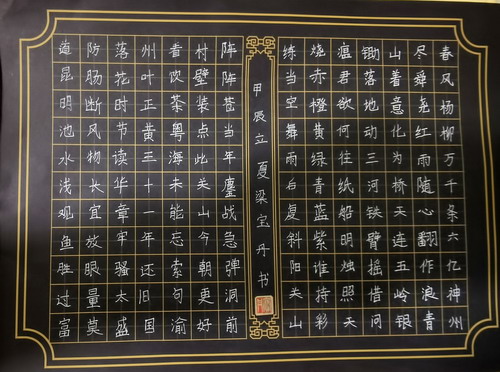 春风杨柳万千条六亿神州
尽舜尧红雨随心翻作浪青
山着意化为桥天连五岭银
锄落地动三河铁臂摇借问
瘟君欲何往纸船明烛照天
烧赤橙黄绿青蓝紫谁持彩
练当空舞雨后复斜阳关山
甲辰立夏梁宝丹书
阵阵苍当年鏖战急弹洞前
村壁装点此关山今朝更好
看饮茶粤海未能忘索句渝
州叶正黄三十一年还旧国
落花时节读华章牢骚太盛
防肠断风物长宜放眼量莫
道昆明池水浅观鱼胜过富